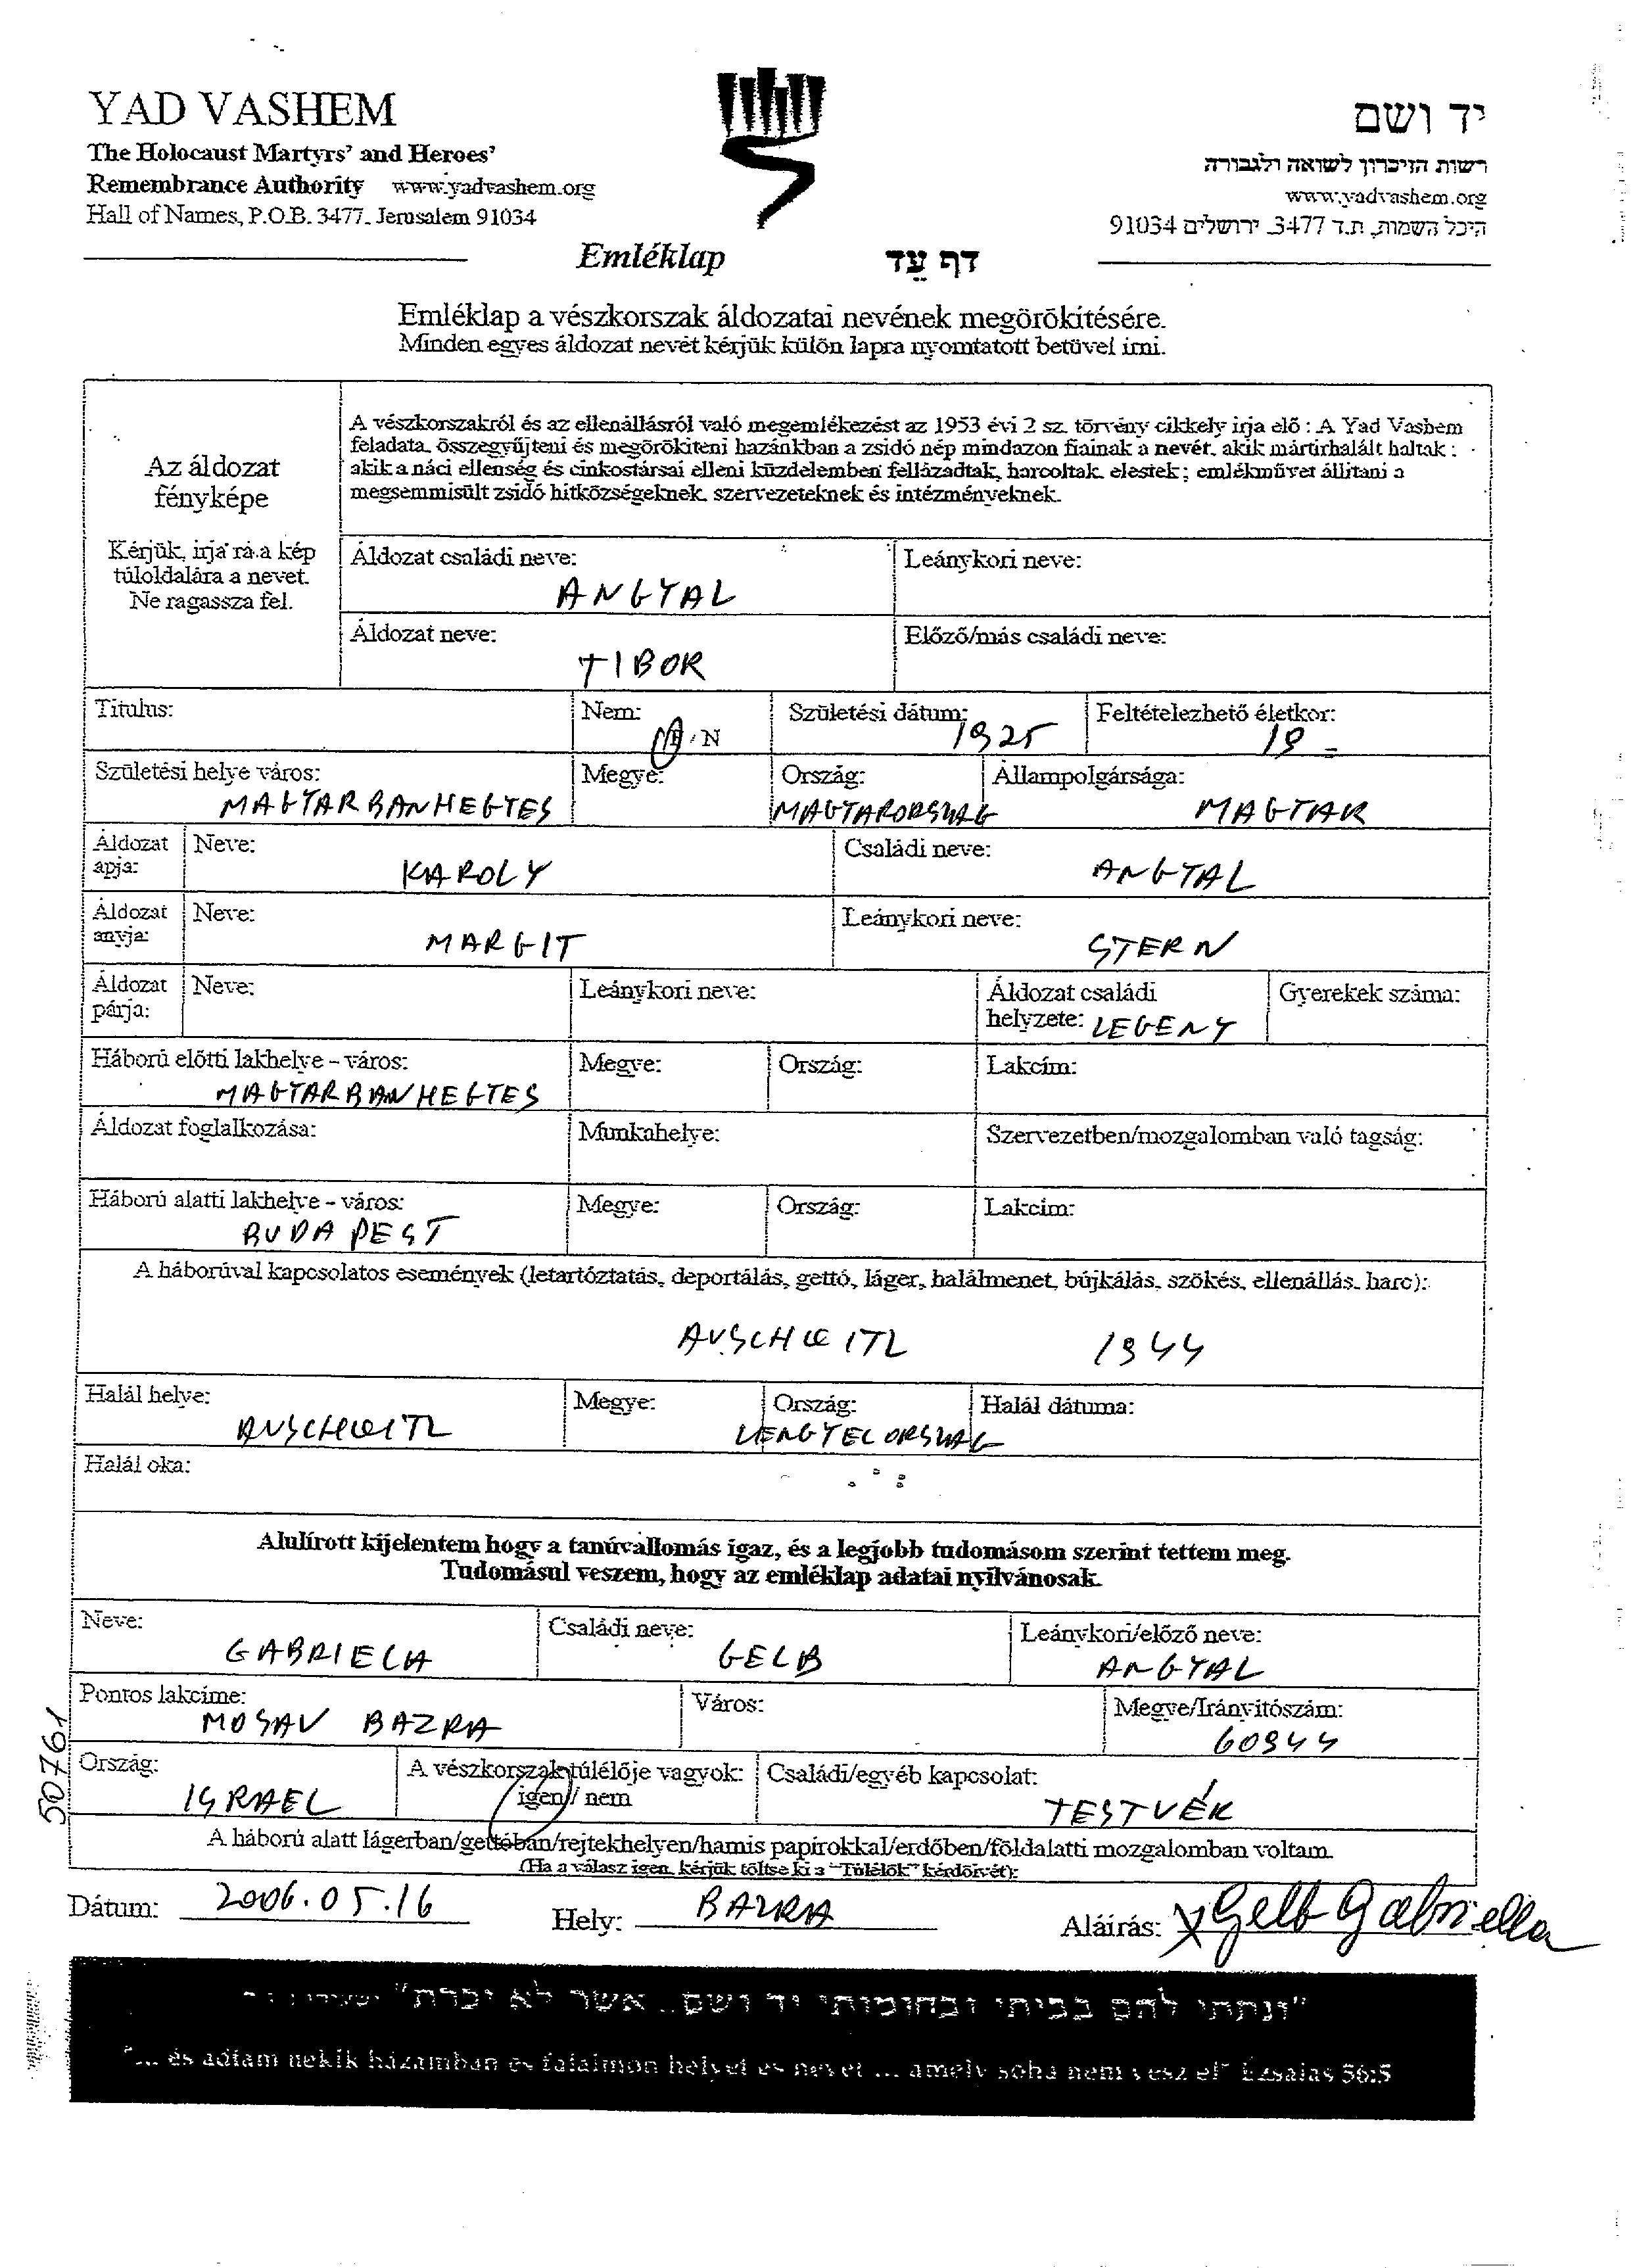 YAD VASHEM
The Holocaust Martyrs' and Heroes'
Remembrance Authority www.yadvashem.org
Hall of Names, P.O.B. 3477. Jerusalem 91034
יד ושם
רשות הזיכרון לשואה ולגבורה
www.yadvashem.org
היכל השמות, ת.ד 3477. ירושלים 91034
Emléklap
דף עֵד
Emléklap a vészkorszak áldozatai nevének megörökitésére.
Minden egyes áldozat nevét kérjük külön lapra nyomtatott betüvel irni.
Az áldozat
fényképe
Kérjük, irja rá a kép
túloldalára a nevet.
Ne ragassza fel.
A vészkorszakról és az ellenállásról való megemlékezést az 1953 évi 2 sz. törvény cikkely irja elő : A Yad Vashem
feladata. összegyűjteni és megörökiteni hazánkban a zsidó nép mindazon fiainak a nevét. akik mártirhalált haltak ;
akik a náci ellenség és cinkostársai elleni küzdelemben fellázadtak, harcoltak. elestek ; emlékművet állitani a
megsemmisült zsidó hitközségeknek. szervezeteknek és intézményeknek.
Áldozat családi neve: ANGYAL
Leánykori neve:
Áldozat neve: TIBOR
Előző/más családi neve:
Titulus:
Nem: F / N
Születési dátum: 1925
Feltételezhető életkor: 19
Születési helye város: MAGYARBANHEGYES
Megye:
Ország: MAGYARORSZAG
Állampolgársága: MAGYAR
Áldozat apja: Neve: KAROLY
Családi neve: ANGYAL
Áldozat anyja: Neve: MARGIT
Leánykori neve: STERN
Áldozat párja: Neve:
Leánykori neve:
Áldozat családi helyzete: LEGENY
Gyerekek száma:
Háború előtti lakhelye – város: MAGYARBANHEGYES
Megye:
Ország:
Lakcím:
Áldozat foglalkozása:
Munkahelye:
Szervezetben/mozgalomban való tagság:
Háború alatti lakhelye – város: BUDAPEST
Megye:
Ország:
Lakcím:
A háborúval kapcsolatos események (letartóztatás, deportálás, gettó, láger, halálmenet, bújkálás, szökés, ellenállás. harc):
AUSCHWITZ 1944
Halál helye: AUSCHWITZ
Megye:
Ország: LENGYELORSZAG
Halál dátuma:
Halál oka:
Alulírott kijelentem hogy a tanúvallomás igaz, és a legjobb tudomásom szerint tettem meg.
Tudomásul veszem, hogy az emléklap adatai nyilvánosak.
Neve: GABRIELA
Családi neve: GELB
Leánykori/előző neve: ANGYAL
Pontos lakcíme: MOSAV BAZRA
Város:
Megye/Irányítószám: 60944
50761
Ország: ISRAEL
A vészkorszak túlélője vagyok: igen / nem
Családi/egyéb kapcsolat: TESTVÉR
A háború alatt lágerban/gettóban/rejtekhelyen/hamis papírokkal/erdőben/földalatti mozgalomban voltam.
(Ha a válasz igen, kérjük töltse ki a "Túlélők" kérdőívét):
Dátum: 2006.05.16
Hely: BAZRA
Aláírás: X Gelb Gabriella
"ונתתי להם בביתי ובחומותי יד ושם.. אשר לא יכרת"
"... és adtam nekik házamban és falaimon helyet és nevet ... amely soha nem vesz el" Ézsaias 56:5